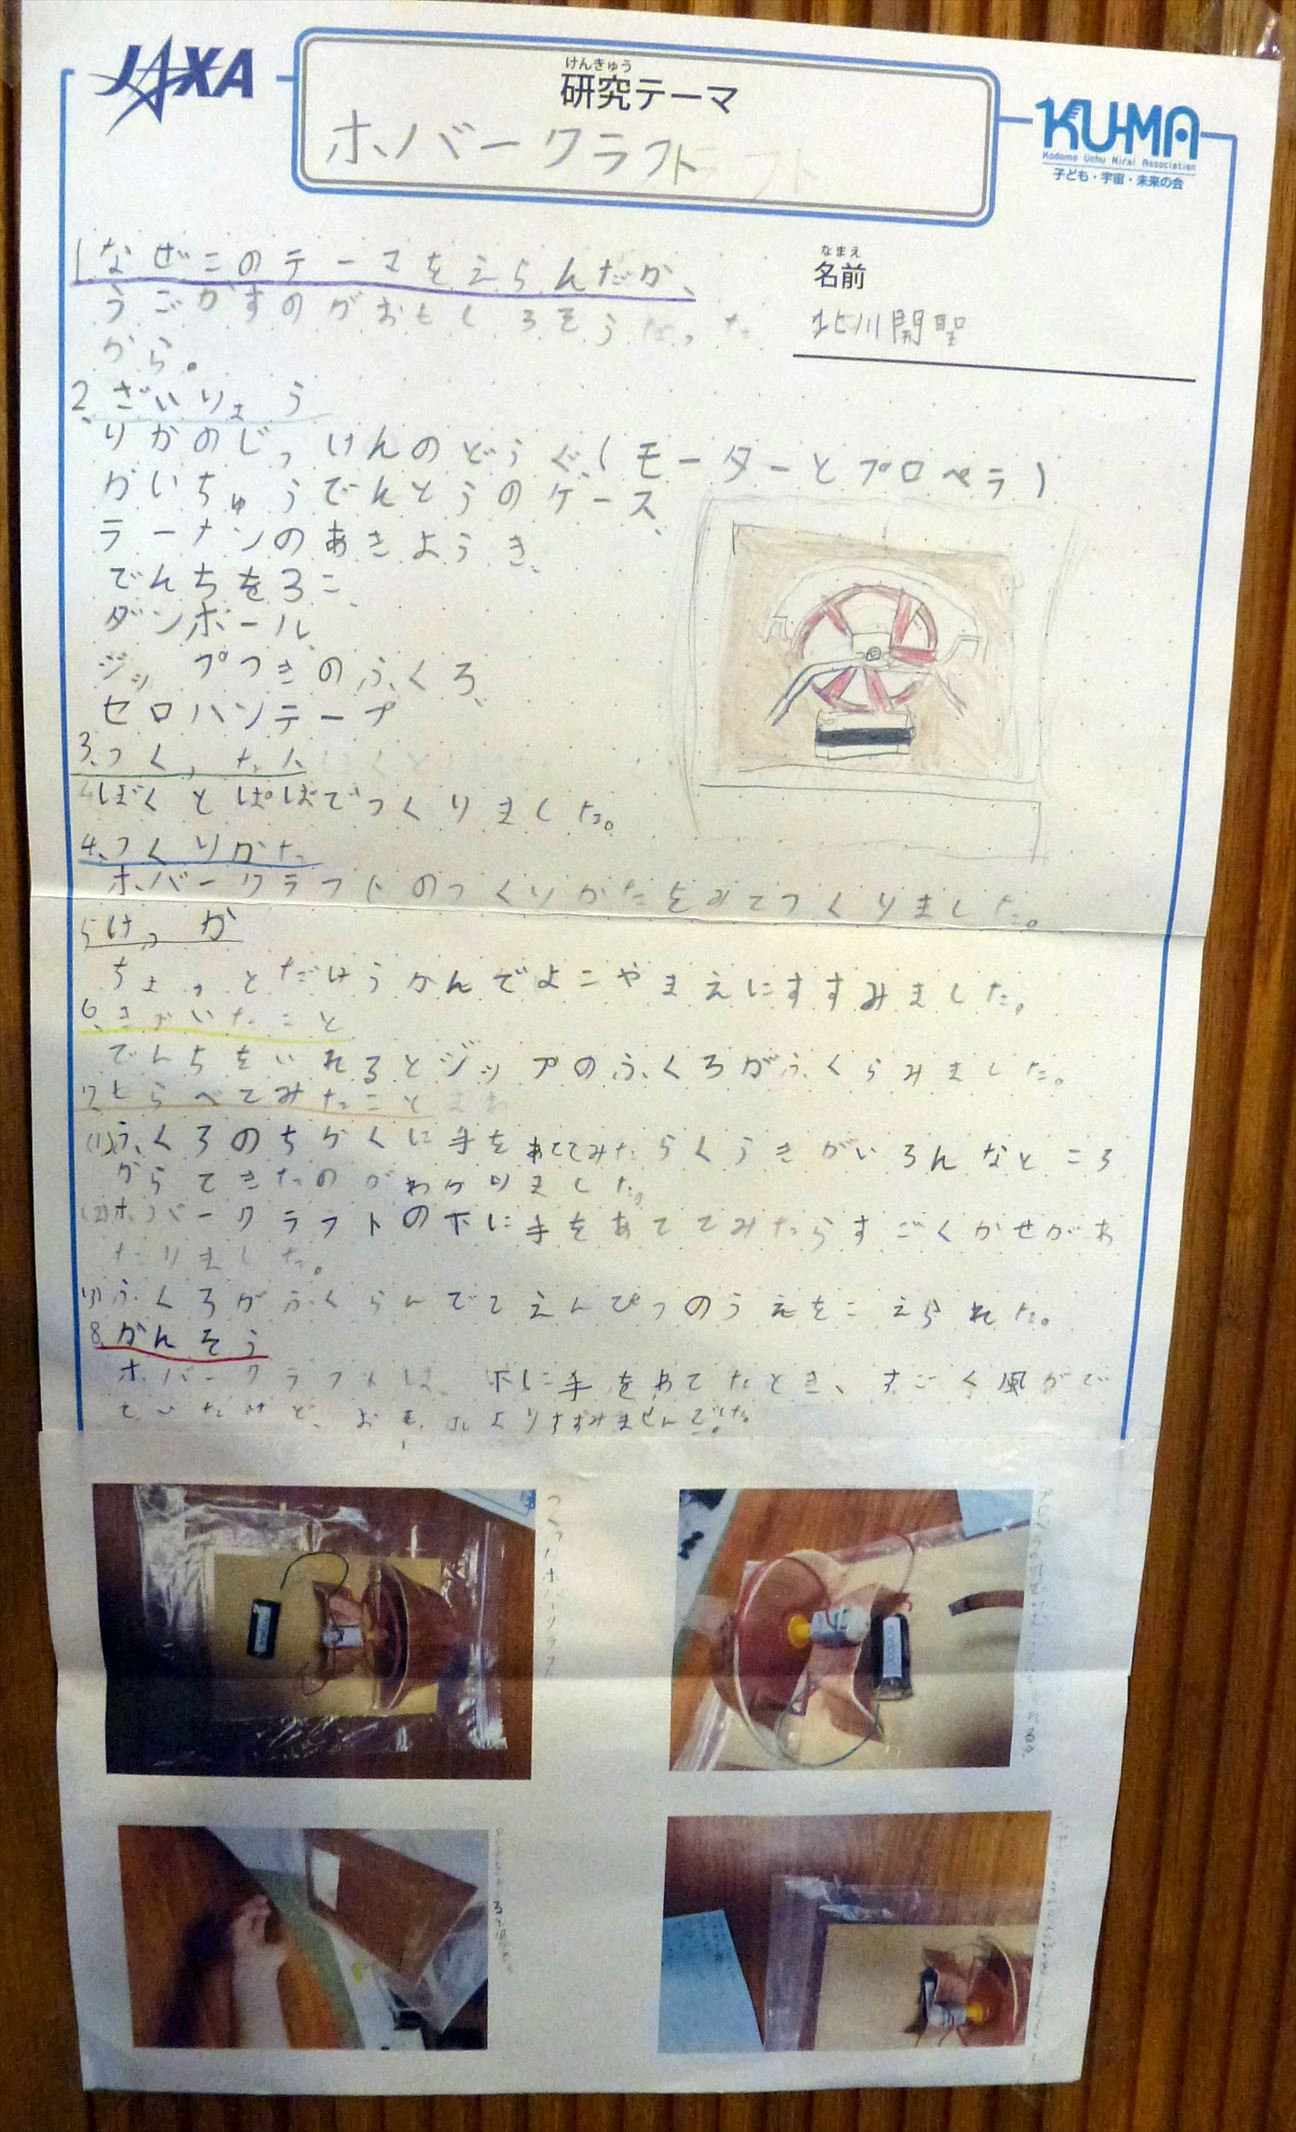 JAXA
けんきゅう
研究テーマ
ホバークラフト
KU-MA
Kodomo Uchu Mirai Association
子ども・宇宙・未来の会
なまえ
名前
北川開聖
1.なぜこのテーマをえらんだか、
うごかすのがおもしろそうだった
から。
2、ざいりょう
りかのじっけんのどうぐ、(モーターとプロペラ)
かいちゅうでんとうのケース、
ラーメンのあきようき、
でんちを3こ、
ダンボール、
ジップつきのふくろ、
セロハンテープ
3、つくった人
ぼくとぱぱでつくりました。
4、つくりかた
ホバークラフトのつくりかたをみてつくりました。
5けっか
ちょっとだけうかんでよこやまえにすすみました。
6、きづいたこと
でんちをいれるとジップのふくろがふくらみました。
7、しらべてみたこと
(1)ふくろのちかくに手をあててみたらくうきがいろんなところ
からでてきたのがわかりました。
(2)ホバークラフトの下に手をあててみたらすごくかぜがあ
たりました。
(3)ふくろがふくらんでてえんぴつのうえをこえられた。
8.かんそう
ホバークラフトは、下に手をあてたとき、すごく風がで
ていたけど、おもったよりすすみませんでした。
つくったホバークラフト